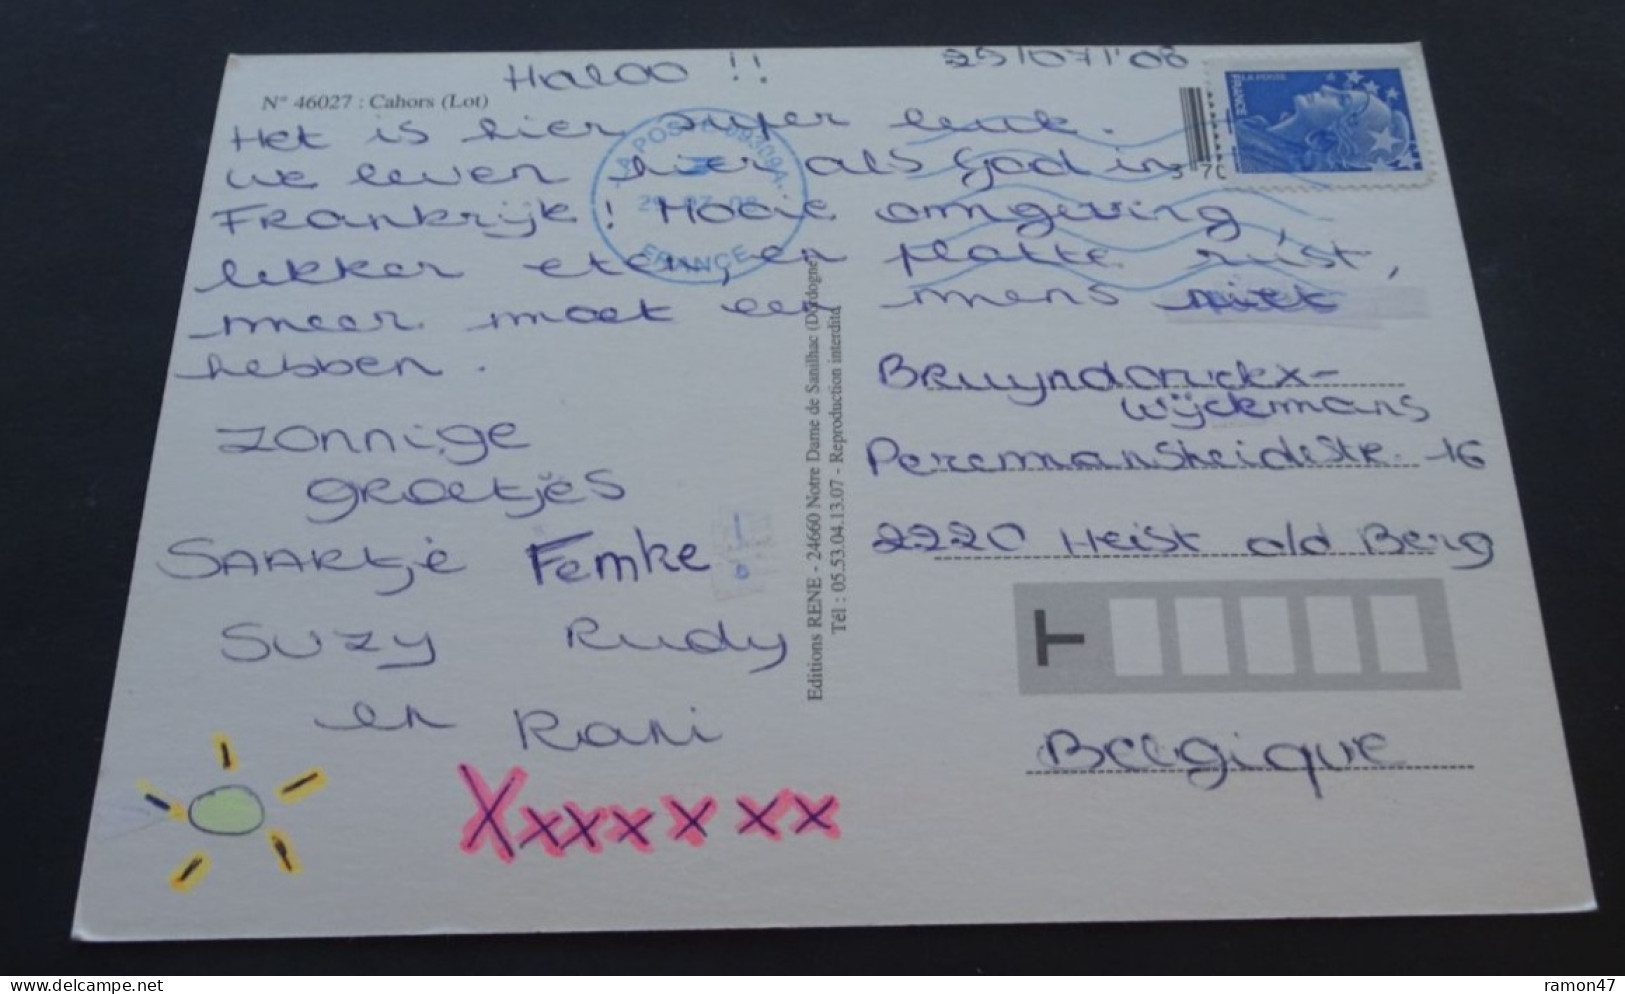 Haloo !!
29/07/'08
N° 46027 : Cahors (Lot)
Het is hier super leuk.
We leven hier als God in
Frankrijk! Mooie omgeving,
lekker eten, en platte rust,
meer moet een mens niet
hebben.
zonnige
groetjes
SAARtje Femke
Suzy Rudy
en Rani
Xxxxxxx
LA POSTE
29-07-08
FRANCE
LA POSTE
FRANCE
Editions RENE - 24660 Notre Dame de Sanilhac (Dordogne)
Tél : 05.53.04.13.07 - Reproduction interdite
Bruyndonckx-
Wijckmans
Peremansheidestr. 16
2220 Heist o/d Berg
T
Belgique
!
ramon47